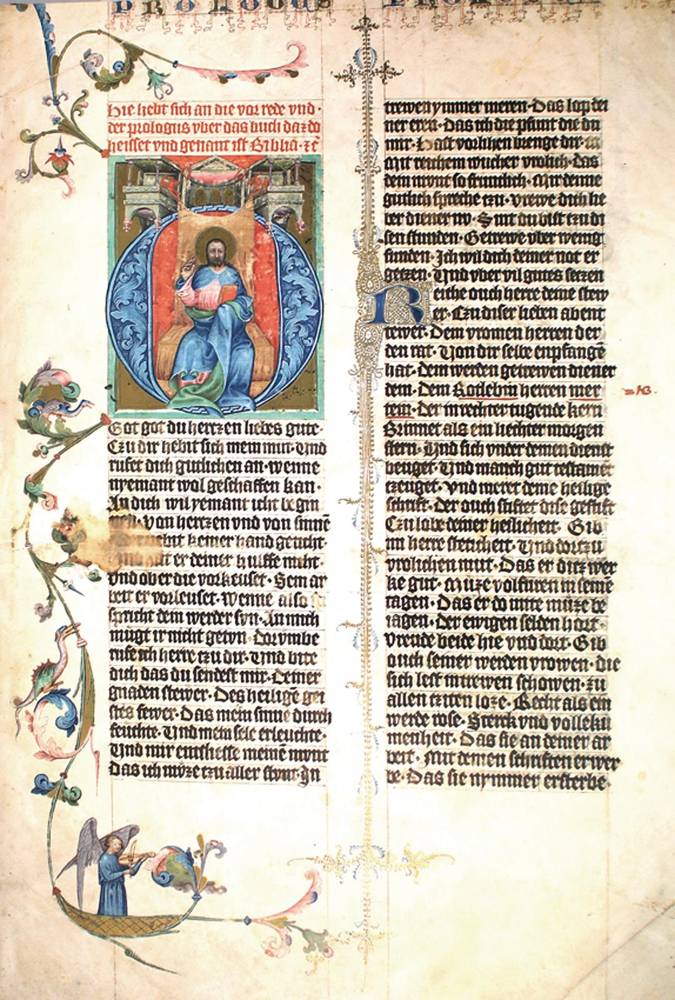 PROLOGUS
Hie hebt sich an die vor rede vnd·
der prologus vber das buch daz do
heisset vnd genant ist Biblia· ꝛc̄
Got got du hertzen liebes gute·
Czu dir hebit sich mein mut· Vnd
rufet dich gutlichen an· wenne
nyemant wol geschaffen kan·
An dich wil yemant icht begin
von hertzen vnd von sinnē
keiner hand geticht·
er deiner hulffe nicht·
Vnd ob er die vorkeuset· Sein ar
beit er vorleuset· Wenne also
spricht dein werder sun· An mich
mügt ir nicht getun· Dorvmbe
rufe ich herre tzu dir· Vnd bite
dich das du sendest mir· Deiner
gnaden stewer· Des heiligē gei
stes fewer· Das mein sinne durch
feuchte· Vnd mein sele erleuchte·
Vnd mir entslisse meinē mvnt
Das ich müze tzu aller stvnt· In
trewen ymmer meren· Das lop dei
ner eren· Das ich die pfunt die du
mir· Hast vorlihen brenge dir·
Mit reichem wucher vrolich· Das
dein mvnt so fruntlich· Mir denne
gutlich spreche tzu· Vrewe dich lie
ber diener nv· Sint du bist tzu di
sen stunden· Getrewe vber wenig
funden· Ich wil dich deiner not er
getzen· Vnd vber vil gutes setzen
Reithe ouch herre deine stew
er· Czu diser lieben abent
tewer· Dem vromen herren der
den rat· Von dir selbe enpfangē
hat· Dem werden getrewen diener
dein· Dem Rotlebin herren mer
tein· Der in rechter tugende kern
Brinnet als ein liechter morgen
stern· Vnd sich vnder deinen dienst
beuget· Vnd manch gut testamēt
ertzeuget· Vnd meret deine heilige
schrift· Der ouch stiftet dise gestift
Czu lobe deiner heilicheit· Gib
im herre steticheit· Vnd dortzu
vrolichen mut· Das er ditz wer
ke gut· Müze volfüren in seinē
tagen· Das er do mite müze be
iagen· Der ewigen selden hort·
Vreude beide hie vnd dort· Gib
ouch seiner werden vrowen· die
sich lest in trewen schowen· zu
allen tziten loze· Recht als ein
werde rose· Sterck vnd volleku
menheit· Das sie an deiner ar
beit· Mit deinen schriften erwer
be· Das sie nymmer ersterbe·